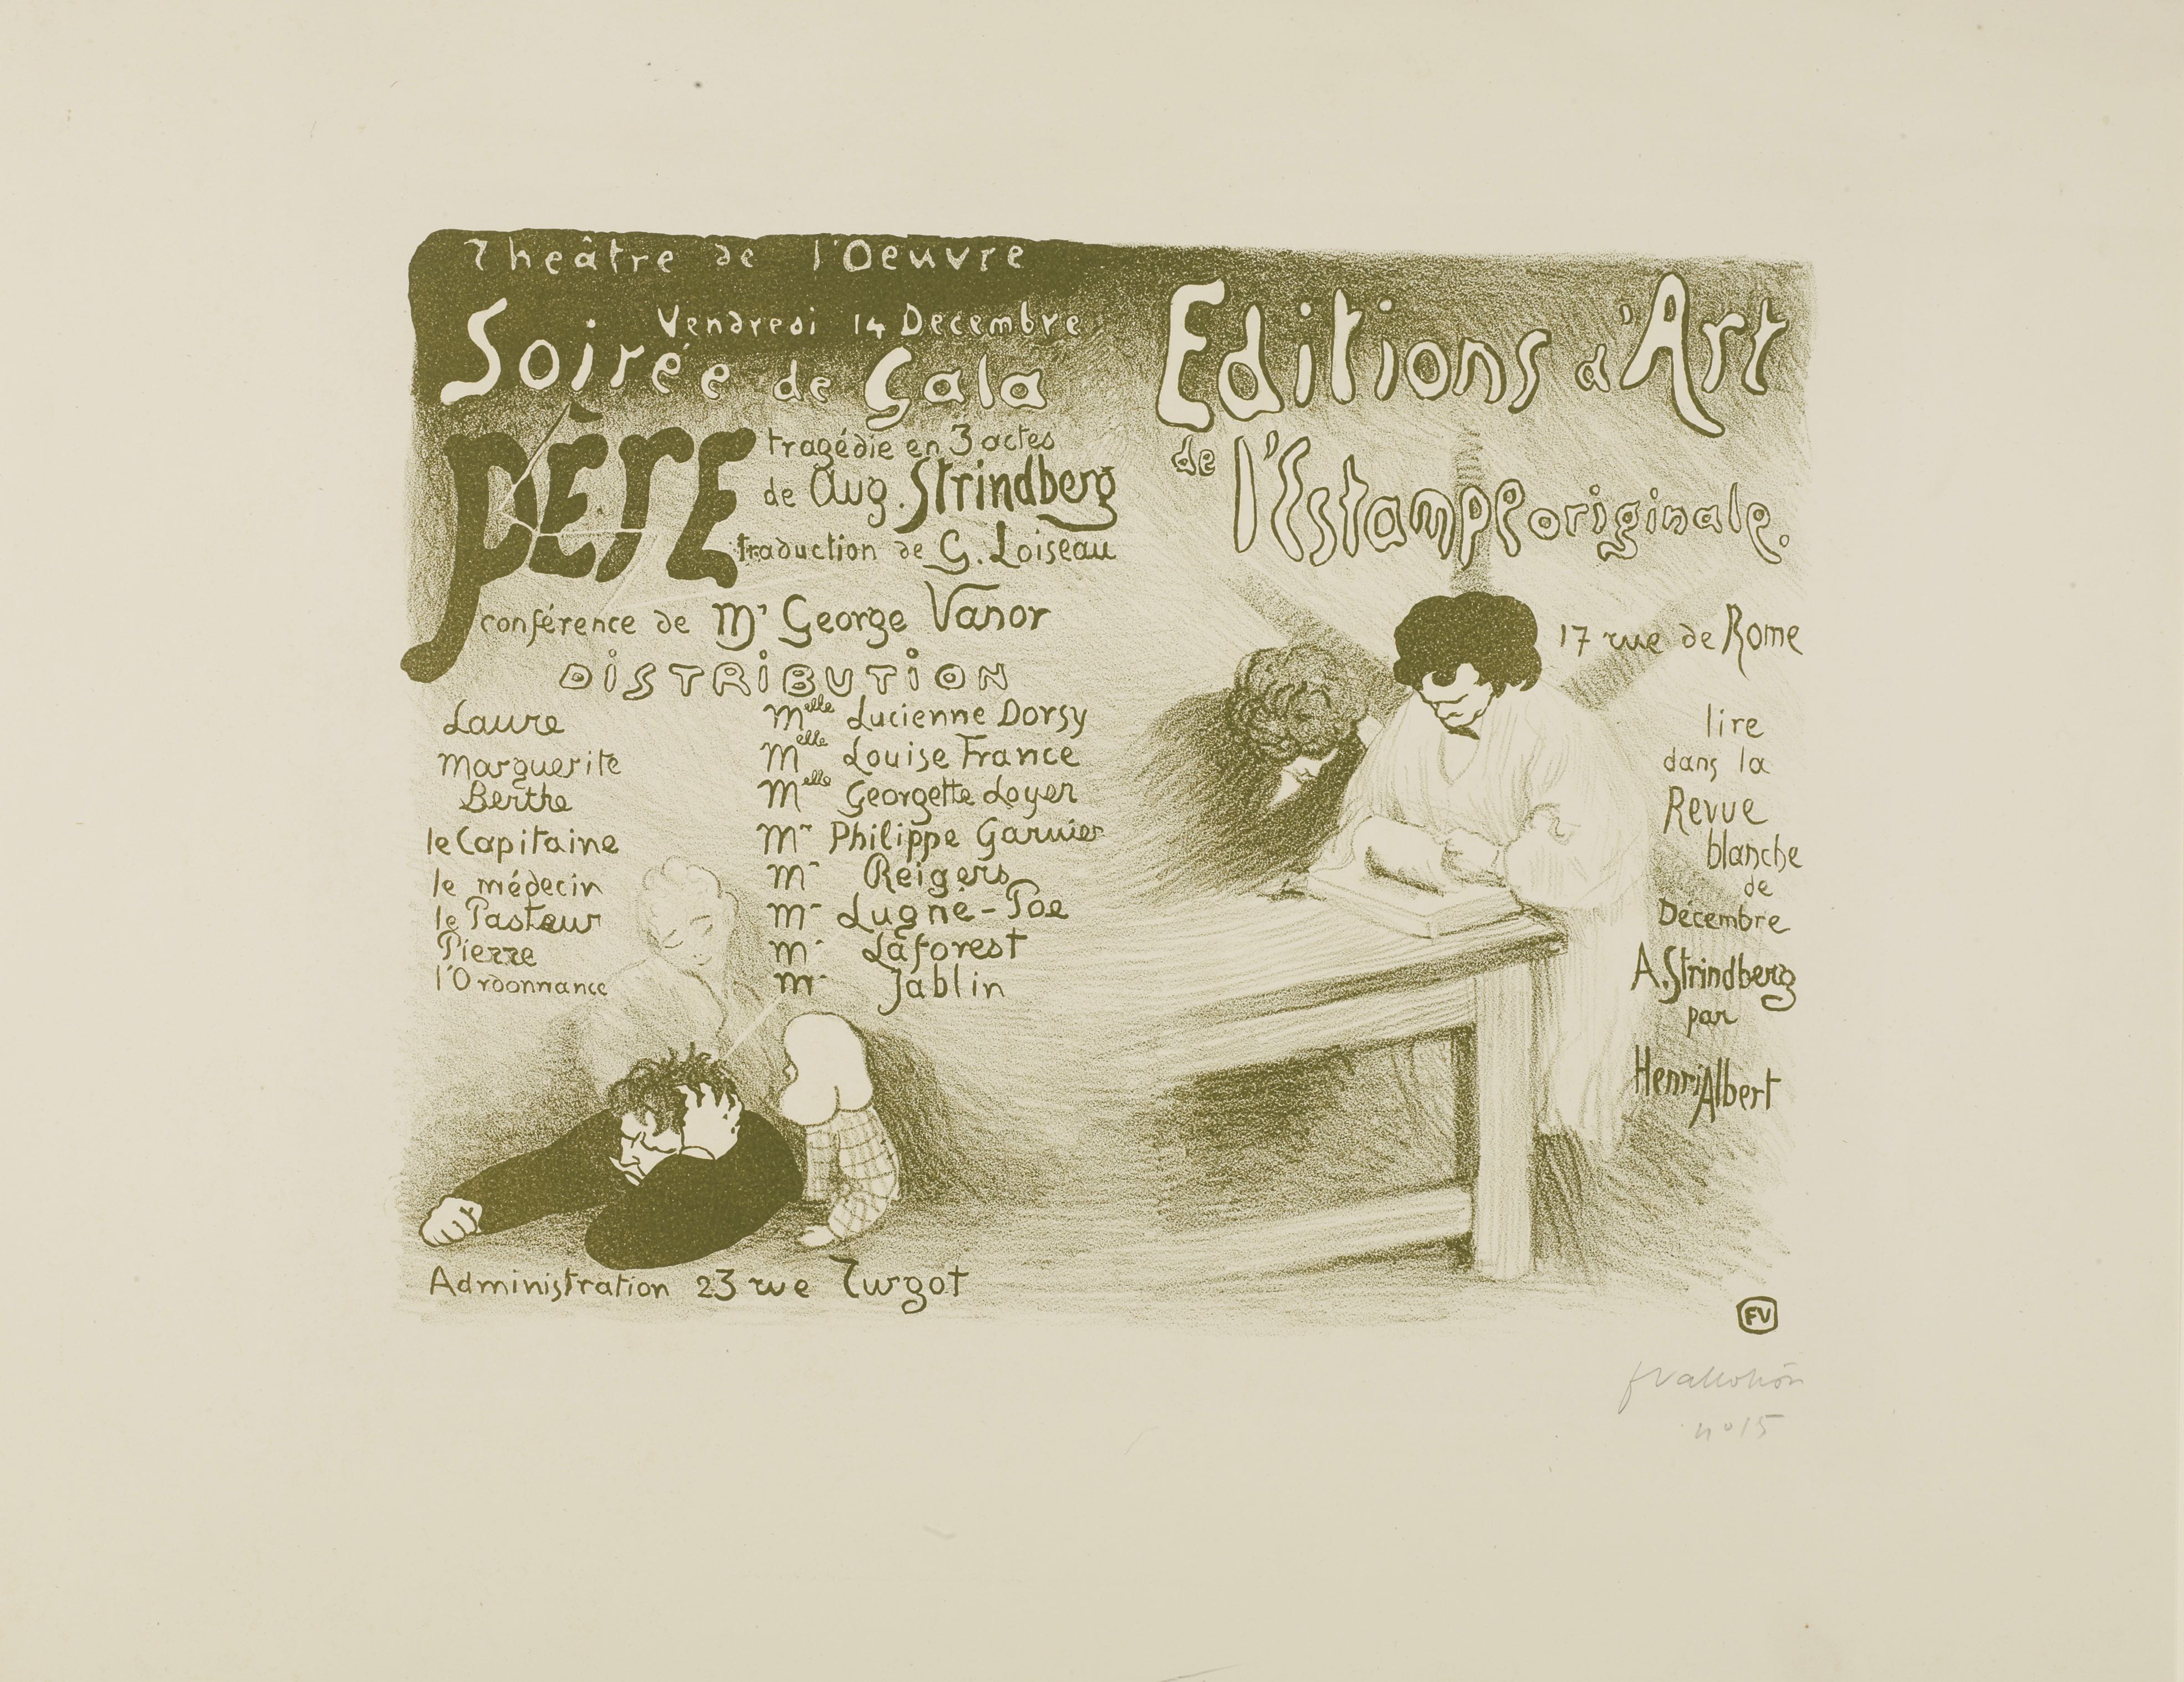 Theâtre de l'Oeuvre
Vendredi 14 Decembre
Soirée de Gala
PÈRE
tragédie en 3 actes
de Aug. Strindberg
traduction de G. Loiseau
conférence de Mr George Vanor
DISTRIBUTION
Laure Melle Lucienne Dorsy
Marguerite Melle Louise France
Berthe Melle Georgette Loyer
le Capitaine Mr Philippe Garnier
le médecin Mr Reigers
le Pasteur Mr Lugné-Poe
Pierre Mr Laforest
l'Ordonnance Mr Jablin
Administration 23 rue Turgot
Editions d'Art
de l'Estampe originale.
17 rue de Rome
lire
dans la
Revue
blanche
de
Décembre
A. Strindberg
par
Henri Albert
FV
fVallotton
no 15